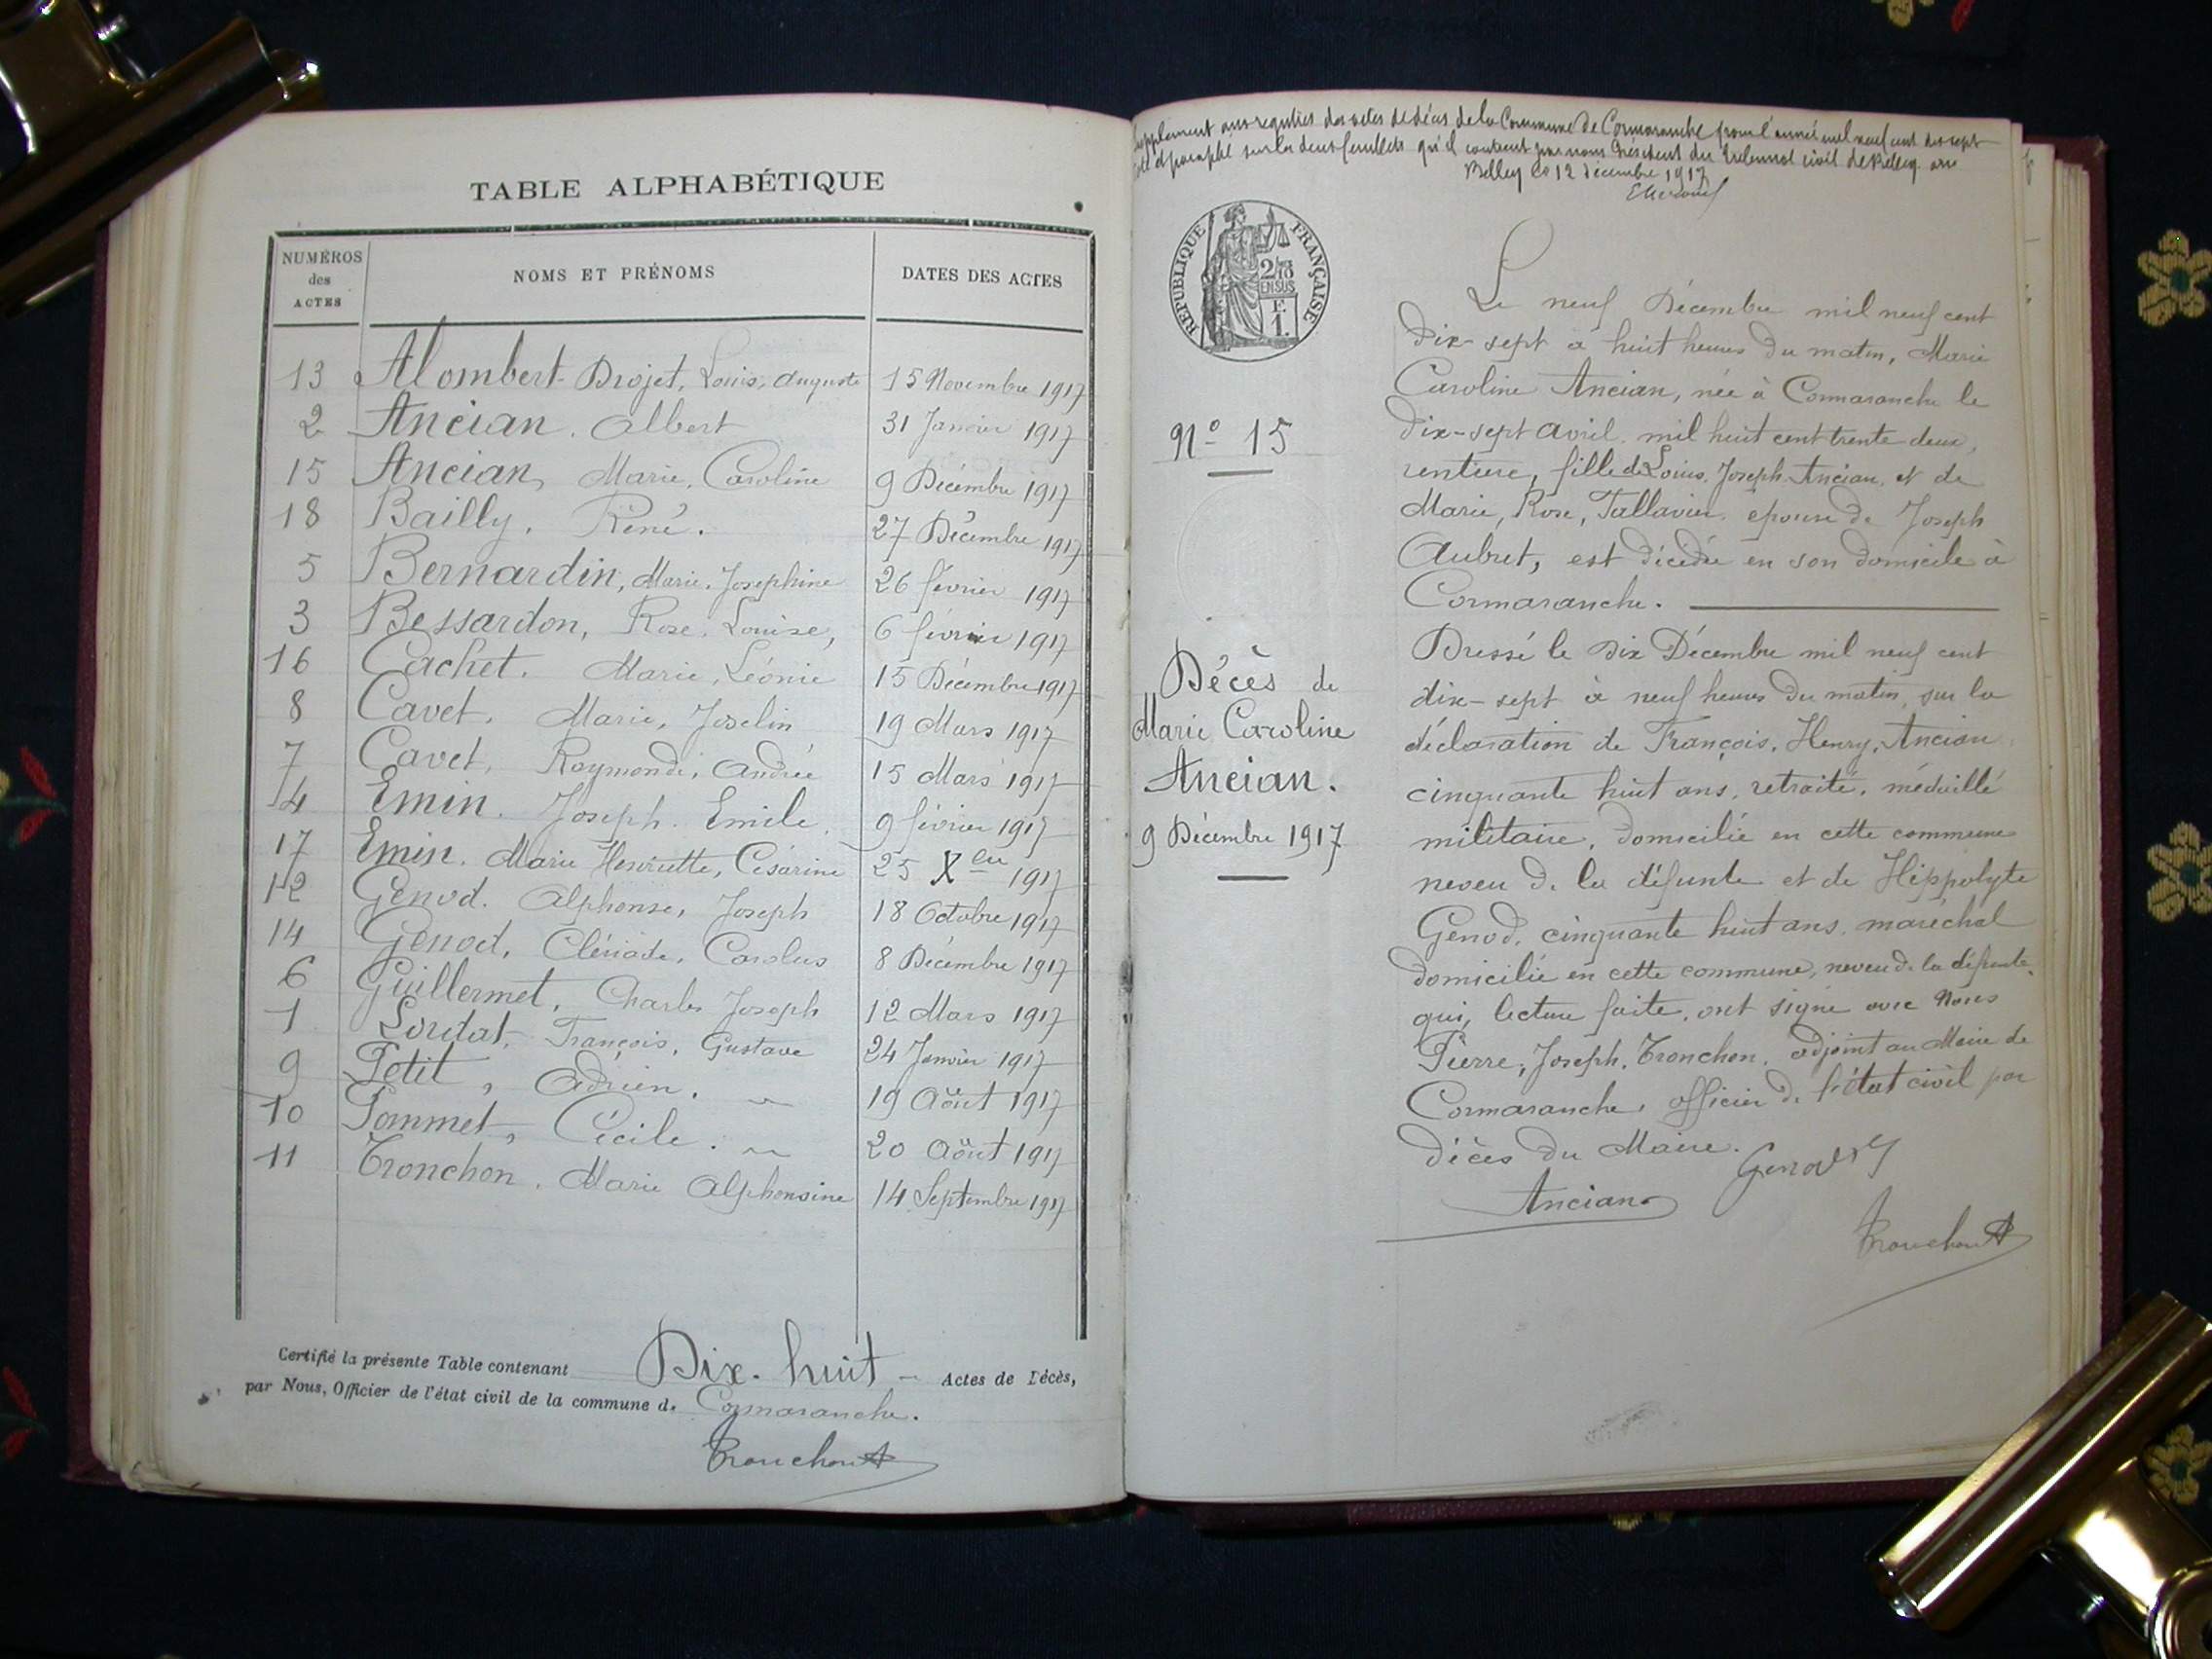 TABLE ALPHABÉTIQUE
NUMÉROS des ACTES NOMS ET PRÉNOMS DATES DES ACTES
13 Alombert-Brojet, Louis, Auguste 15 Novembre 1917
2 Ancian. Albert 31 Janvier 1917
15 Ancian, Marie, Caroline 9 Décembre 1917
18 Bailly, René. 27 Décembre 1917
5 Bernardin, Marie, Josephine 26 février 1917
3 Bessardon, Rose, Louise, 6 février 1917
16 Cachet. Marie, Léonie 15 Décembre 1917
8 Cavet. Marie, Joselin 19 Mars 1917
7 Cavet, Raymonde, Andrée 15 Mars 1917
4 Emin. Joseph. Emile. 9 février 1917
17 Emin. Marie Henriette, Césarine 25 Xbre 1917
12 Genod. Alphonse, Joseph 18 Octobre 1917
14 Genod, Clériade, Carolus 8 Décembre 1917
6 Guillermet, Charles Joseph 12 Mars 1917
1 Lordat, François, Gustave 24 Janvier 1917
9 Petit, Adrien. 19 Août 1917
10 Pommet, Cécile. 20 Août 1917
11 Tronchon. Marie Alphonsine 14 Septembre 1917
Certifié la présente Table contenant Dix-huit Actes de Décès,
par Nous, Officier de l'état civil de la commune de Cormaranche.
Tronchon
Supplément aux registres des actes de décès de la Commune de Cormaranche pour l'année mil neuf cent dix sept
coté et paraphé sur les deux feuillets qu'il contient par nous Président du tribunal civil de Belley
Belley le 12 décembre 1917
RÉPUBLIQUE FRANÇAISE
2/10
EN SUS
F.
1.
No 15
Décès de
Marie Caroline
Ancian.
9 Décembre 1917
Le neuf Décembre mil neuf cent
Dix-sept à huit heures du matin, Marie
Caroline Ancian, née à Cormaranche le
Dix-sept avril mil huit cent trente deux,
rentière, fille de Louis, Joseph Ancian et de
Marie, Rose, Tallavier, épouse de Joseph
Aubret, est décédée en son domicile à
Cormaranche.
Dressé le dix Décembre mil neuf cent
dix-sept à neuf heures du matin, sur la
déclaration de François, Henry, Ancian
cinquante huit ans, retraité, médaillé
militaire, domicilié en cette commune
neveu de la défunte et de Hippolyte
Genod, cinquante huit ans, maréchal
domicilié en cette commune, neveu de la défunte,
qui, lecture faite, ont signé avec Nous
Pierre, Joseph, Tronchon, adjoint au Maire de
Cormaranche, officier de l'état civil par
décès du Maire.
Genod H
Ancian
Tronchon